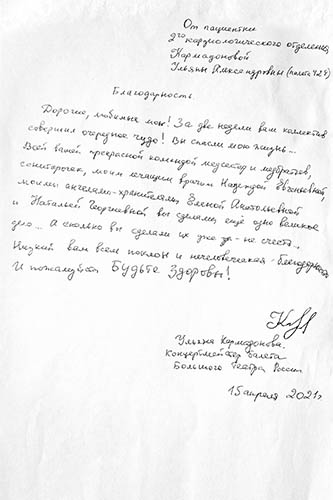 От пациентки
2го кардиологического отделения
Кармадоновой
Ульяны Александровны (палата 429)
Благодарность
Дорогие, любимые мои! За две недели ваш коллектив
совершил очередное чудо! Вы спасли мою жизнь...
Всей вашей прекрасной командой медсестёр и медбратов,
санитарочек, моим лечащим врачом Надеждой Евгеньевной,
моими ангелами-хранителями, Еленой Анатольевной
и Натальей Георгиевной вы сделали ещё одно великое
дело... А сколько вы сделали их уже за - не счесть.
Низкий вам всем поклон и нечеловеческая благодарность
И пожалуйста Будьте Здоровы!
Ульяна Кармадонова.
Концертмейстер балета
Большого Театра России
15 апреля 2021г